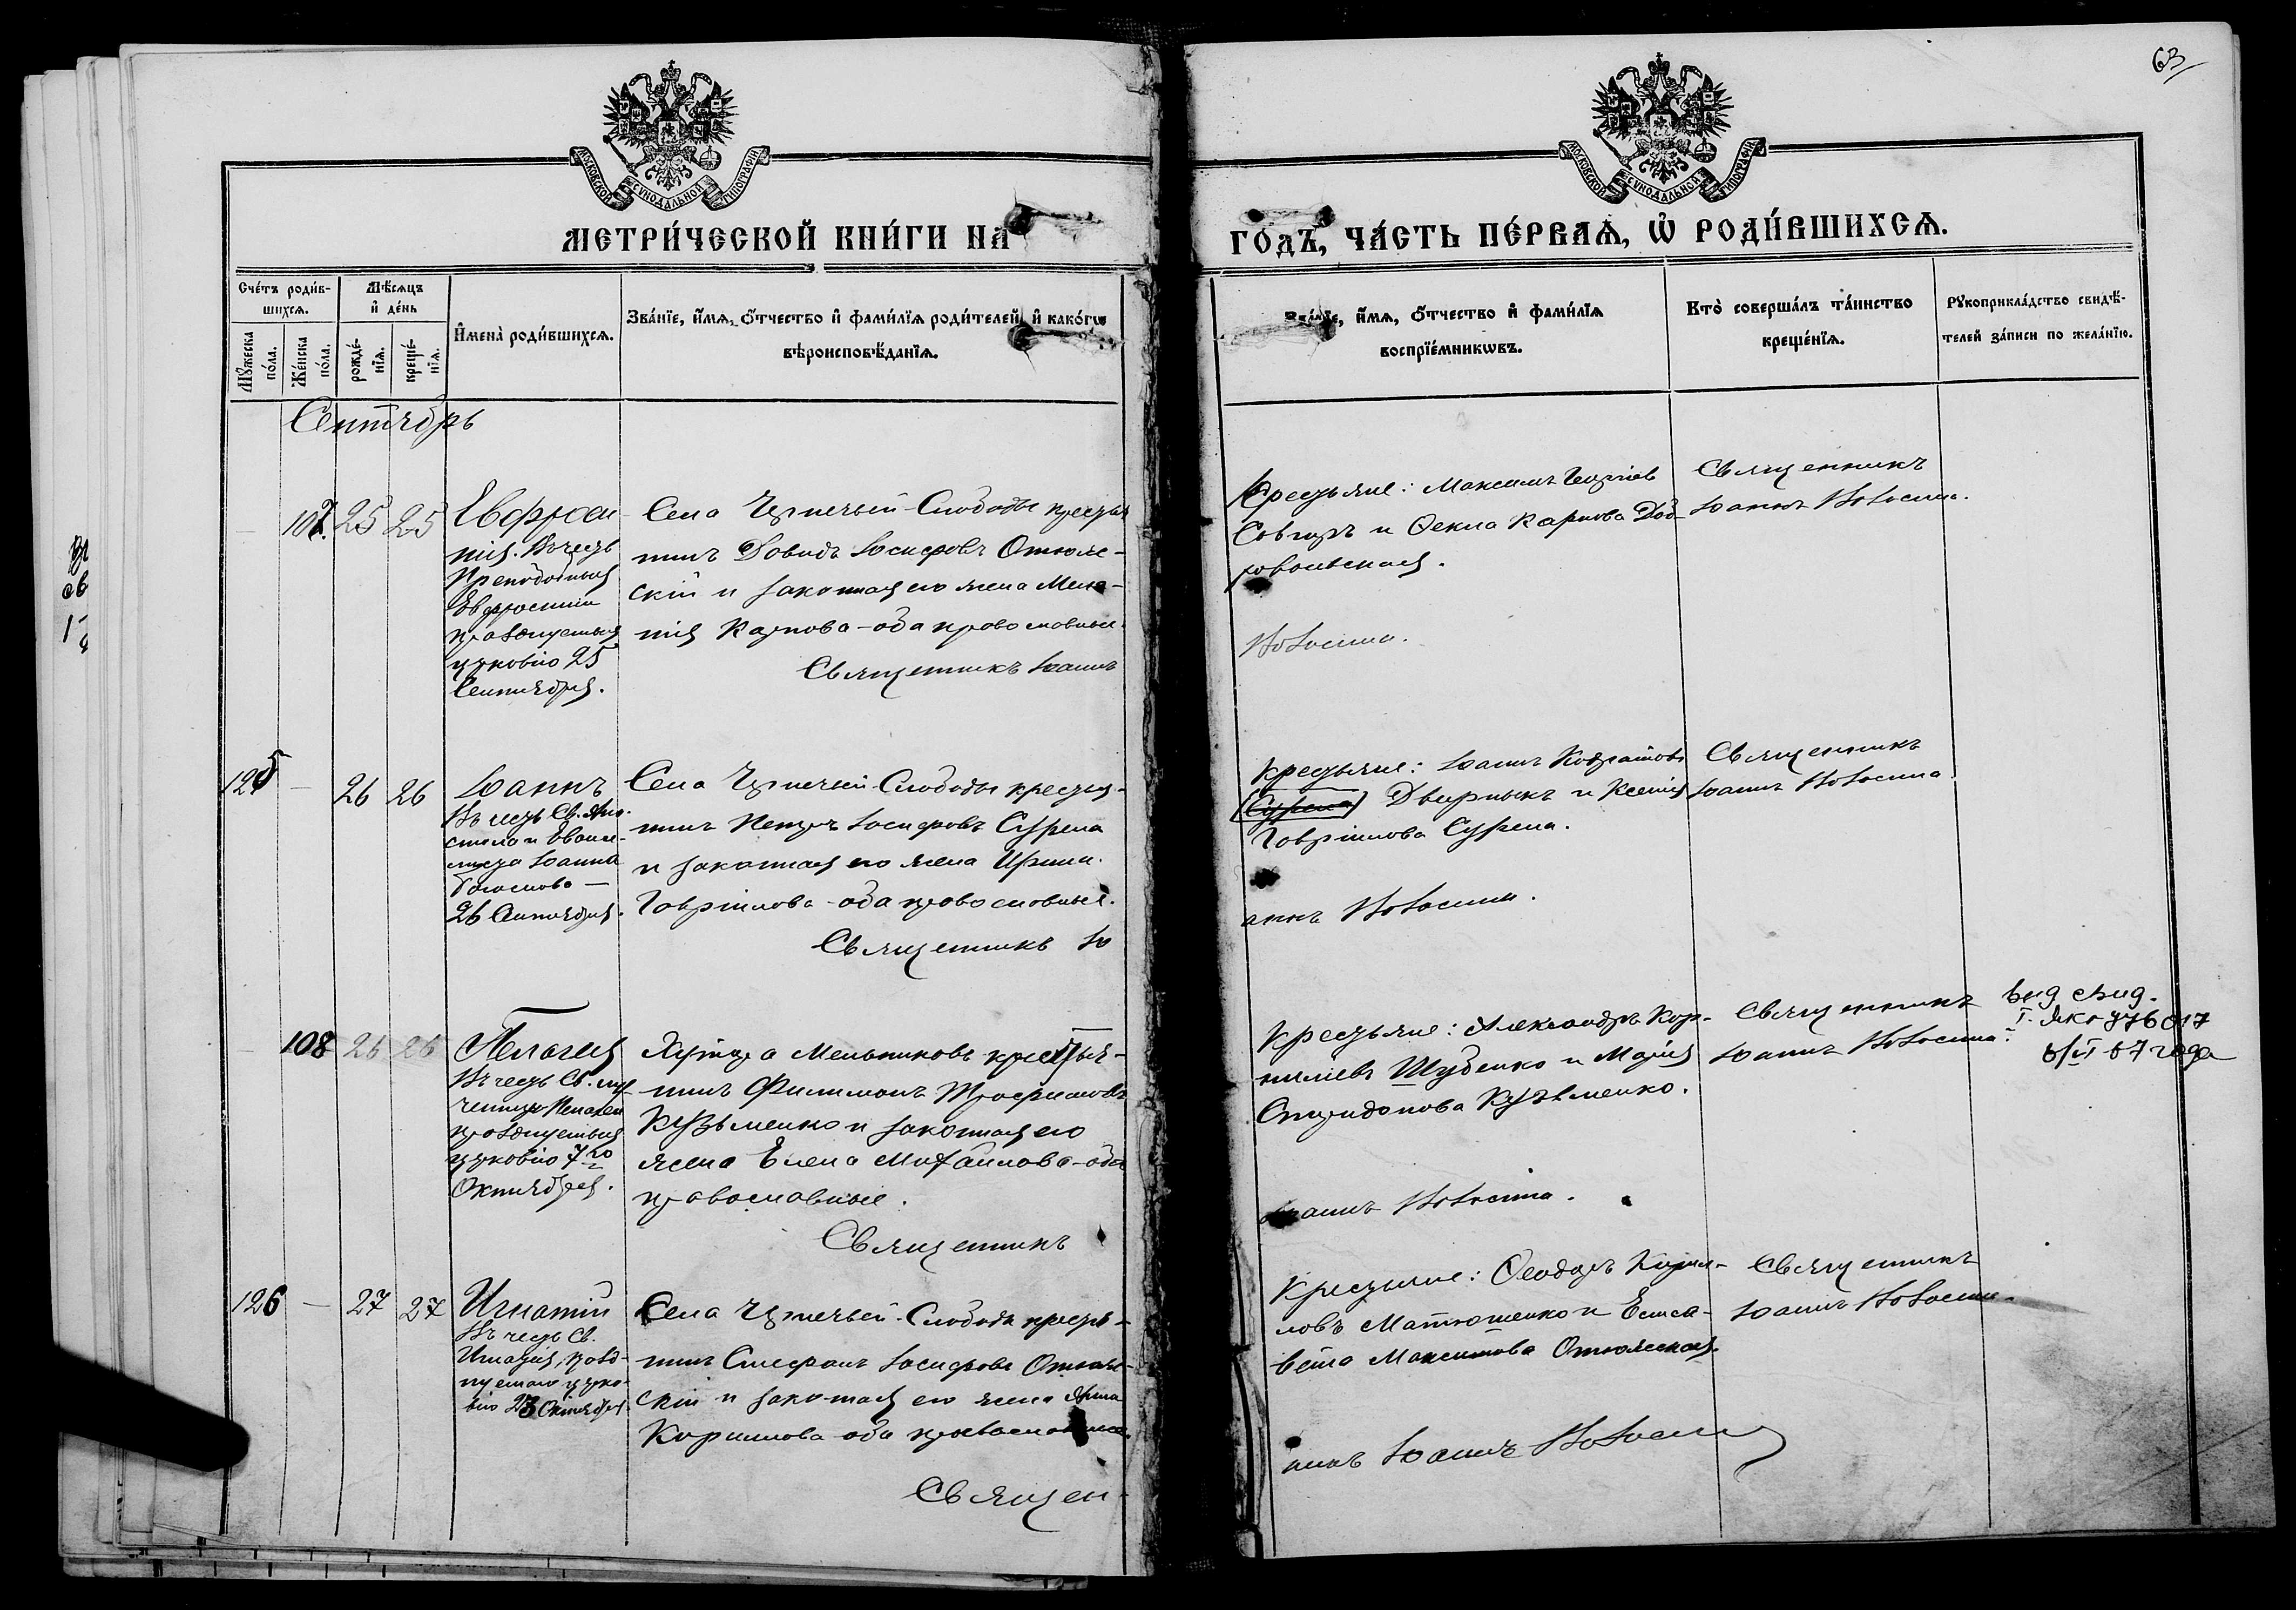 63
МОСКОВСКОЙ СѴНОДАЛЬНОЙ ТИПОГРАФІИ
МОСКОВСКОЙ СѴНОДАЛЬНОЙ ТИПОГРАФІИ
МЕТРИ́ЧЕСКОЙ КНИ́ГИ НА
ГО́ДЪ, ЧА́СТЬ ПЕ́РВАѦ, Ѡ҆ РОДИ́ВШИХСѦ.
Сче́тъ роди́в-
шихсѧ.
Мꙋжеска по́ла.
Же́нска по́ла.
Мѣ́сѧцъ
и҆ де́нь
рожде́-
нїѧ.
креще́-
нїѧ.
И҆мена̀ роди́вшихсѧ.
Зва́нїе, и҆́мѧ, ѻ҆́тчество и҆ фамѝлїѧ роди́телей, и҆ како́гѡ
вѣроисповѣ́данїѧ.
Зва́нїе, и҆́мѧ, ѻ҆́тчество и҆ фамѝлїѧ
воспрїе́мникѡвъ.
Кто̀ соверша́лъ та́инство
креще́нїѧ.
Рꙋкоприкла́дство свидѣ́-
телей за́писи по жела́нїю.
Сентябрь
107. 25 25
Евфроси
нія. Въ честь
Преподобныя
Евфросиніи
празднуемыя
церковію 25
Сентября.
Села Чупичьей-Слободы крестья
нинъ Давидъ Іосифовъ
скій и законная его жена Мела-
нія Карпова - оба православные.
Священникъ Іоаннъ
Крестьяне: Максимъ Георгіев
и Ѳекла Карпова Доб-
ровольская.
Священникъ
Іоаннъ
125 — 26 26
Іоаннъ
Въ честь Св. Апо-
стола и Еванге-
листа Іоанна
Богослова —
26 Сентября.
Села Чупичьей-Слободы крестья-
нинъ Петръ Іосифовъ Сурена
и законная его жена Ирина
Гавріилова - оба православные.
Священникъ Іо
Крестьяне: Іоаннъ Кодратовъ
(Сурена) Дверныкъ и Ксенія
Гавріилова Сурена.
аннъ
Священникъ
Іоаннъ
108 26 26
Пелагія
Въ честь Св. му-
ченицы Пелагеи
празднуемыя
церковію 7го
Октября.
Хутора Мельниковъ крестья-
нинъ Филимонъ Трофимовъ
Кузьменко и законная его
жена Елена Михайлова - оба
православные.
Священникъ
Крестьяне: Александръ Кор-
ниліевъ Шубенко и Марія
Спиридонова Кузьменко.
Іоаннъ
Священникъ
Іоаннъ
126 — 27 27
Игнатій
Въ честь Св.
Игнатія, празд-
нуемаго церко-
вію 23 Октября.
Села Чупичьей-Слободы крестья-
нинъ Стефанъ Іосифовъ
скій и законная его жена Анна
Кирилова оба православные.
Священ-
Крестьяне: Ѳеодоръ Кирил-
ловъ Матюшенко и Елиса-
вета Максимова
никъ Іоаннъ
Священникъ
Іоаннъ